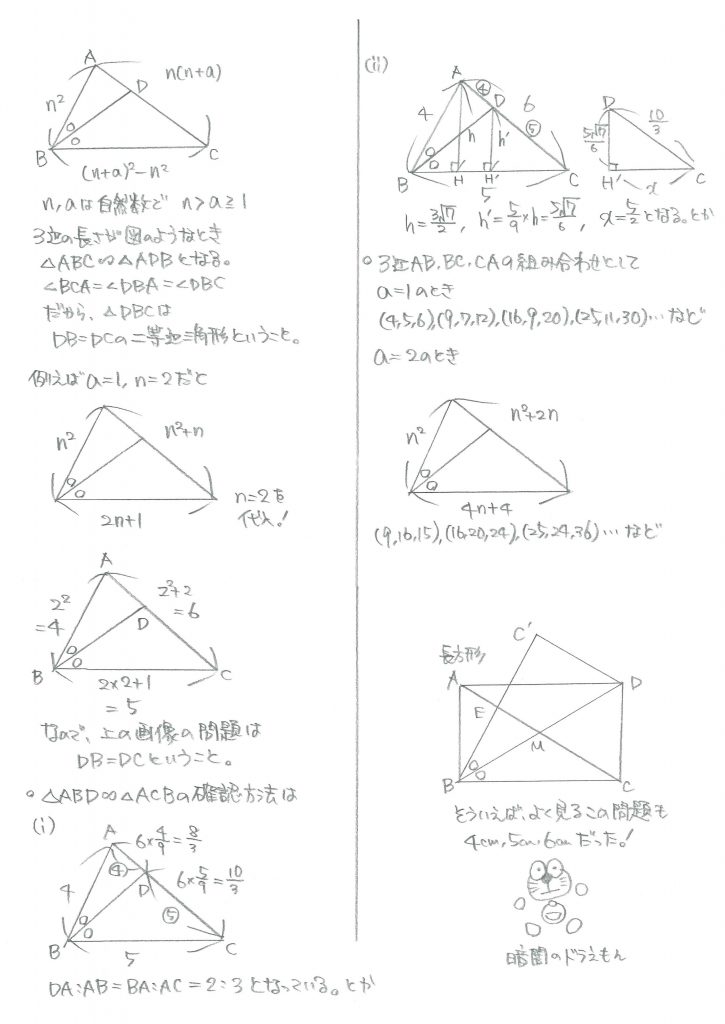 A
D
n(n+a)
n²
B
C
(n+a)²-n²
n, aは自然数で n>a≧1
3辺の長さが図のようなとき
△ABC∽△ADBとなる。
∠BCA=∠DBA=∠DBC
だから、△DBCは
DB=DCの二等辺三角形ということ。
例えばa=1, n=2だと
n²
n²+n
2n+1
n=2を
代入!
A
2²
=4
2²+2
=6
D
B
C
2×2+1
=5
なので、上の画像の問題は
DB=DCということ。
○ △ABD∽△ACBの確認方法は
(i)
A
6×4/9=8/3
④
D
6×5/9=10/3
4
⑤
B
C
5
DA:AB=BA:AC=2:3となっている。とか
(ii)
A
④
D
6
4
h
h'
⑤
B
H
H'
C
5
D
5√7/6
10/3
H'
x
C
h=3√7/2, h'=5/9×h=5√7/6, x=5/2となる。とか
○ 3辺AB, BC, CAの組み合わせとして
a=1のとき
(4,5,6),(9,7,12),(16,9,20),(25,11,30)…など
a=2のとき
n²
n²+2n
4n+4
(9,16,15),(16,20,24),(25,24,35)…など
C'
長方形
A
D
E
M
B
C
そういえば、よく見るこの問題も
4cm, 5cm, 6cmだった!
暗闇のドラえもん